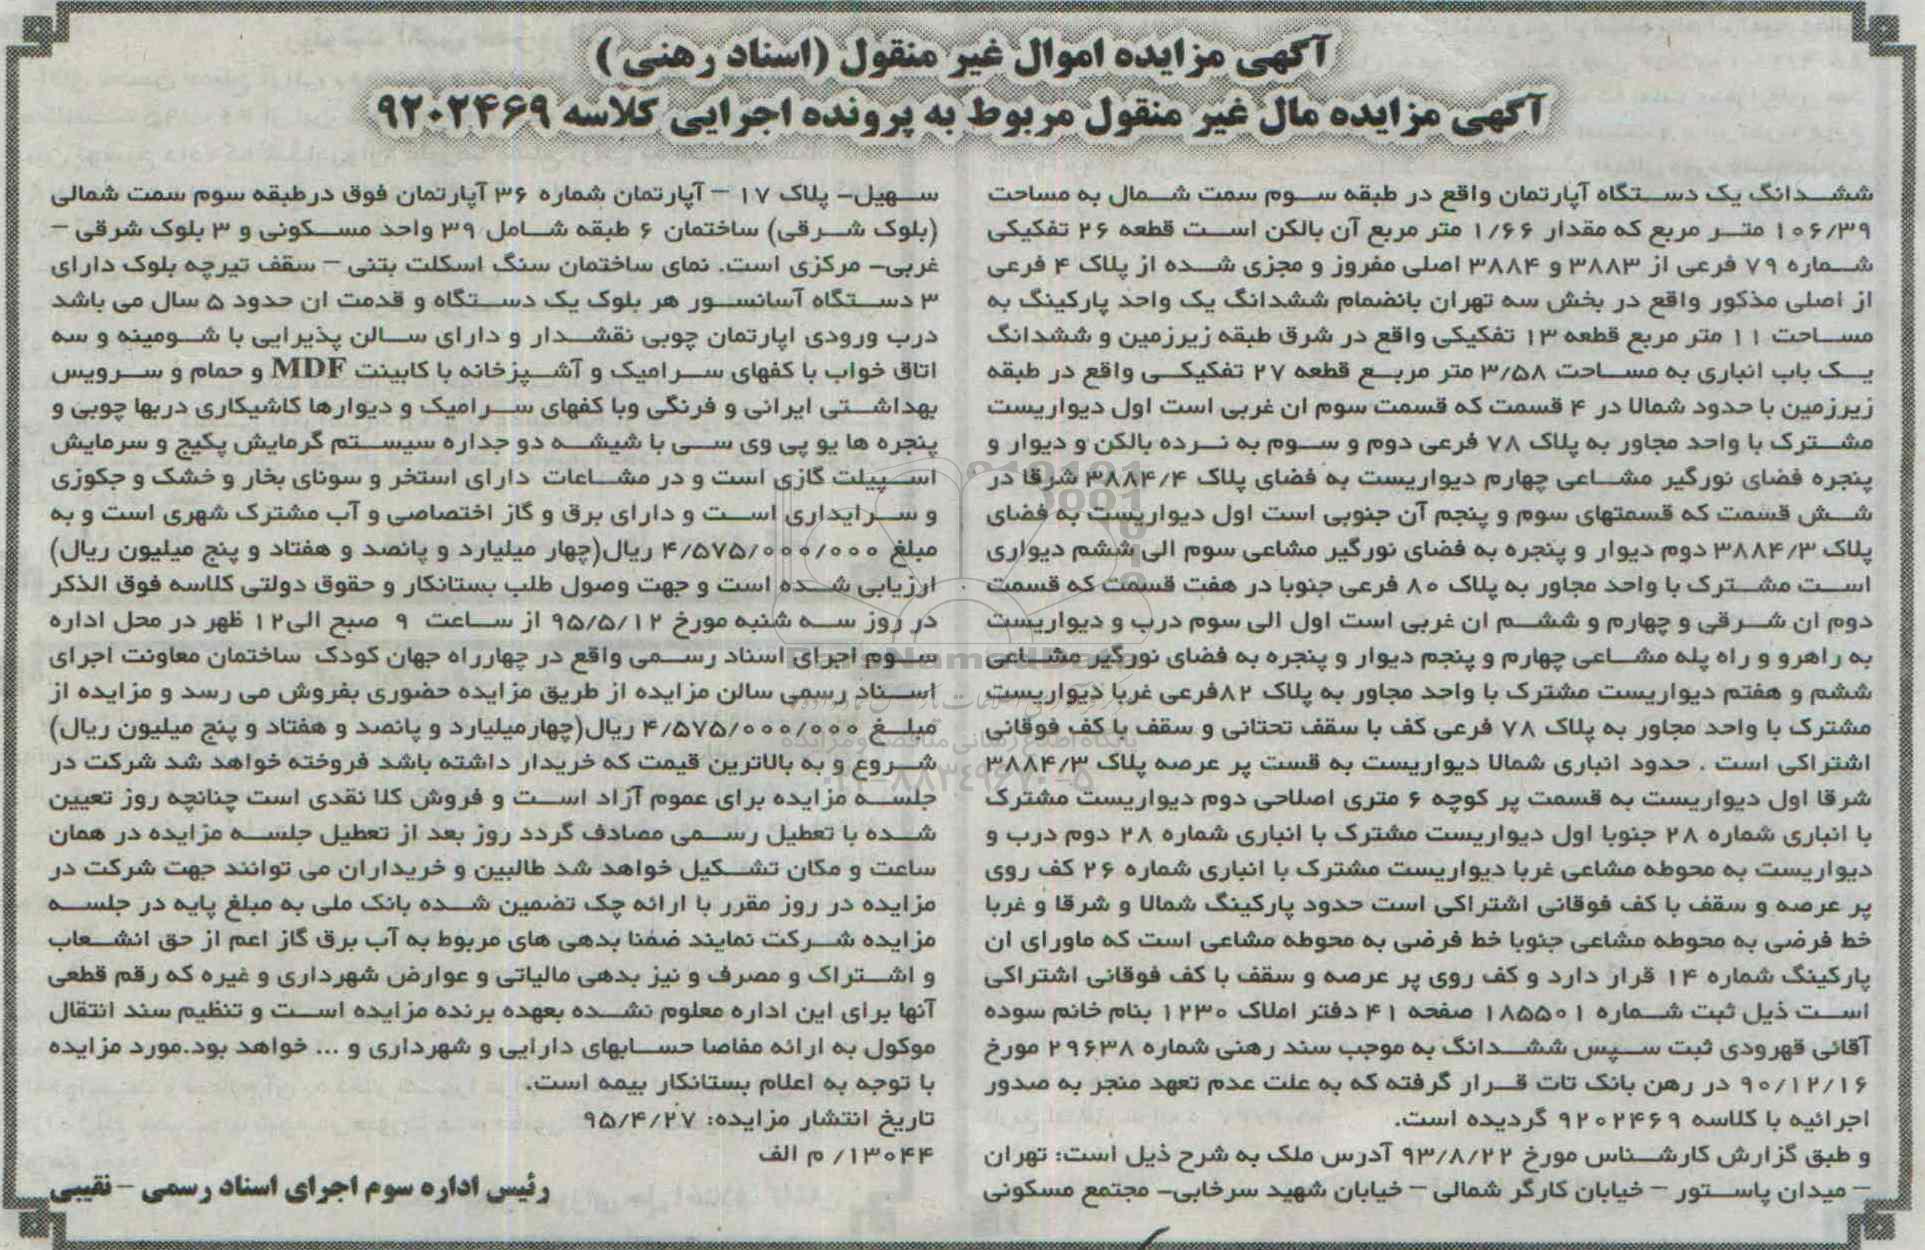 آگهی مزایده اموال غیر منقول (اسناد رهنی )
آگهی مزایده مال غیر منقول مربوط به پرونده اجرایی کلاسه ۹۲۰۲۴۶۹
ششدانگ یک دستگاه آپارتمان واقع در طبقه سوم سمت شمال به مساحت
۱۰۶/۳۹ متر مربع که مقدار ۱/۶۶ متر مربع آن بالکن است قطعه ۲۶ تفکیکی
شماره ۷۹ فرعی از ۳۸۸۳ و ۳۸۸۴ اصلی مفروز و مجزی شده از پلاک ۴ فرعی
از اصلی مذکور واقع در بخش سه تهران بانضمام ششدانگ یک واحد پارکینگ به
مساحت ۱۱ متر مربع قطعه ۱۳ تفکیکی واقع در شرق طبقه زیرزمین و ششدانگ
یک باب انباری به مساحت ۳/۵۸ متر مربع قطعه ۲۷ تفکیکی واقع در طبقه
زیرزمین با حدود شمالا در ۴ قسمت که قسمت سوم ان غربی است اول دیواریست
مشترک با واحد مجاور به پلاک ۷۸ فرعی دوم و سوم به نرده بالکن و دیوار و
پنجره فضای نورگیر مشاعی چهارم دیواریست به فضای پلاک ۳۸۸۴/۴ شرقا در
شش قسمت که قسمتهای سوم و پنجم آن جنوبی است اول دیواریست به فضای
پلاک ۳۸۸۴/۳ دوم دیوار و پنجره به فضای نورگیر مشاعی سوم الی ششم دیواری
است مشترک با واحد مجاور به پلاک ۸۰ فرعی جنوبا در هفت قسمت که قسمت
دوم ان شرقی و چهارم و ششم ان غربی است اول الی سوم درب و دیواریست
به راهرو و راه پله مشاعی چهارم و پنجم دیوار و پنجره به فضای نورگیر مشاعی
ششم و هفتم دیواریست مشترک با واحد مجاور به پلاک ۸۲فرعی غربا دیواریست
مشترک با واحد مجاور به پلاک ۷۸ فرعی کف با سقف تحتانی و سقف با کف فوقانی
اشتراکی است . حدود انباری شمالا دیواریست به قست پر عرصه پلاک ۳۸۸۴/۳
شرقا اول دیواریست به قسمت پر کوچه ۶ متری اصلاحی دوم دیواریست مشترک
با انباری شماره ۲۸ جنوبا اول دیواریست مشترک با انباری شماره ۲۸ دوم درب و
دیواریست به محوطه مشاعی غربا دیواریست مشترک با انباری شماره ۲۶ کف روی
پر عرصه و سقف با کف فوقانی اشتراکی است حدود پارکینگ شمالا و شرقا و غربا
خط فرضی به محوطه مشاعی جنوبا خط فرضی به محوطه مشاعی است که ماورای ان
پارکینگ شماره ۱۴ قرار دارد و کف روی پر عرصه و سقف با کف فوقانی اشتراکی
است ذیل ثبت شماره ۱۸۵۵۰۱ صفحه ۴۱ دفتر املاک ۱۲۳۰ بنام خانم سوده
آقائی قهرودی ثبت سپس ششدانگ به موجب سند رهنی شماره ۲۹۶۳۸ مورخ
۹۰/۱۲/۱۶ در رهن بانک تات قرار گرفته که به علت عدم تعهد منجر به صدور
اجرائیه با کلاسه ۹۲۰۲۴۶۹ گردیده است.
و طبق گزارش کارشناس مورخ ۹۳/۸/۲۲ آدرس ملک به شرح ذیل است: تهران
– میدان پاستور – خیابان کارگر شمالی – خیابان شهید سرخابی– مجتمع مسکونی
سهیل– پلاک ۱۷ – آپارتمان شماره ۳۶ آپارتمان فوق درطبقه سوم سمت شمالی
(بلوک شرقی) ساختمان ۶ طبقه شامل ۳۹ واحد مسکونی و ۳ بلوک شرقی –
غربی– مرکزی است. نمای ساختمان سنگ اسکلت بتنی – سقف تیرچه بلوک دارای
۳ دستگاه آسانسور هر بلوک یک دستگاه و قدمت ان حدود ۵ سال می باشد
درب ورودی اپارتمان چوبی نقشدار و دارای سالن پذیرایی با شومینه و سه
اتاق خواب با کفهای سرامیک و آشپزخانه با کابینت MDF و حمام و سرویس
بهداشتی ایرانی و فرنگی وبا کفهای سرامیک و دیوارها کاشیکاری دربها چوبی و
پنجره ها یو پی وی سی با شیشه دو جداره سیستم گرمایش پکیج و سرمایش
اسپیلت گازی است و در مشاعات دارای استخر و سونای بخار و خشک و جکوزی
و سرایداری است و دارای برق و گاز اختصاصی و آب مشترک شهری است و به
مبلغ ۴/۵۷۵/۰۰۰/۰۰۰ ریال(چهار میلیارد و پانصد و هفتاد و پنج میلیون ریال)
ارزیابی شده است و جهت وصول طلب بستانکار و حقوق دولتی کلاسه فوق الذکر
در روز سه شنبه مورخ ۹۵/۵/۱۲ از ساعت ۹ صبح الی۱۲ ظهر در محل اداره
سوم اجرای اسناد رسمی واقع در چهارراه جهان کودک ساختمان معاونت اجرای
اسناد رسمی سالن مزایده از طریق مزایده حضوری بفروش می رسد و مزایده از
مبلغ ۴/۵۷۵/۰۰۰/۰۰۰ ریال(چهارمیلیارد و پانصد و هفتاد و پنج میلیون ریال)
شروع و به بالاترین قیمت که خریدار داشته باشد فروخته خواهد شد شرکت در
جلسه مزایده برای عموم آزاد است و فروش کلا نقدی است چنانچه روز تعیین
شده با تعطیل رسمی مصادف گردد روز بعد از تعطیل جلسه مزایده در همان
ساعت و مکان تشکیل خواهد شد طالبین و خریداران می توانند جهت شرکت در
مزایده در روز مقرر با ارائه چک تضمین شده بانک ملی به مبلغ پایه در جلسه
مزایده شرکت نمایند ضمنا بدهی های مربوط به آب برق گاز اعم از حق انشعاب
و اشتراک و مصرف و نیز بدهی مالیاتی و عوارض شهرداری و غیره که رقم قطعی
آنها برای این اداره معلوم نشده بعهده برنده مزایده است و تنظیم سند انتقال
موکول به ارائه مفاصا حسابهای دارایی و شهرداری و ... خواهد بود.مورد مزایده
با توجه به اعلام بستانکار بیمه است.
تاریخ انتشار مزایده: ۹۵/۴/۲۷
۱۳۰۴۴/ م الف
رئیس اداره سوم اجرای اسناد رسمی – نقیبی